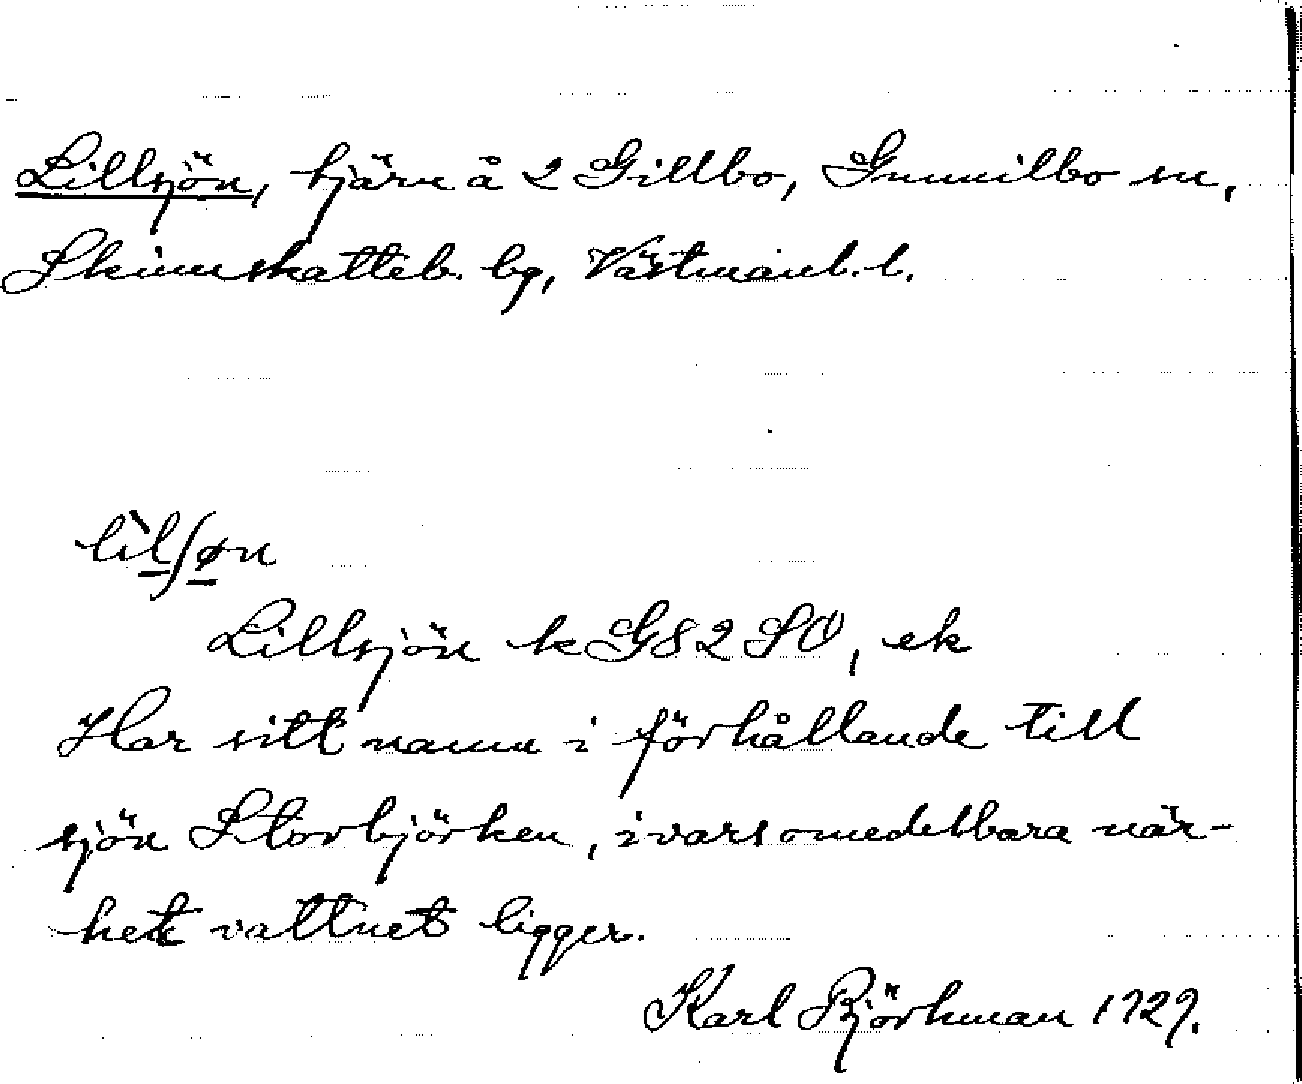 Lillsjön, tjärn å 2 Gillbo, Gunnilbo sn,
Skinnskatteb. bg, Västmanl. l.
lìlʃøn
Lillsjön k G82SO, ek
Har sitt namn i förhållande till
sjön Storbjörken, i vars omedelbara när-
het vattnet ligger.
Karl Björkman 1929.